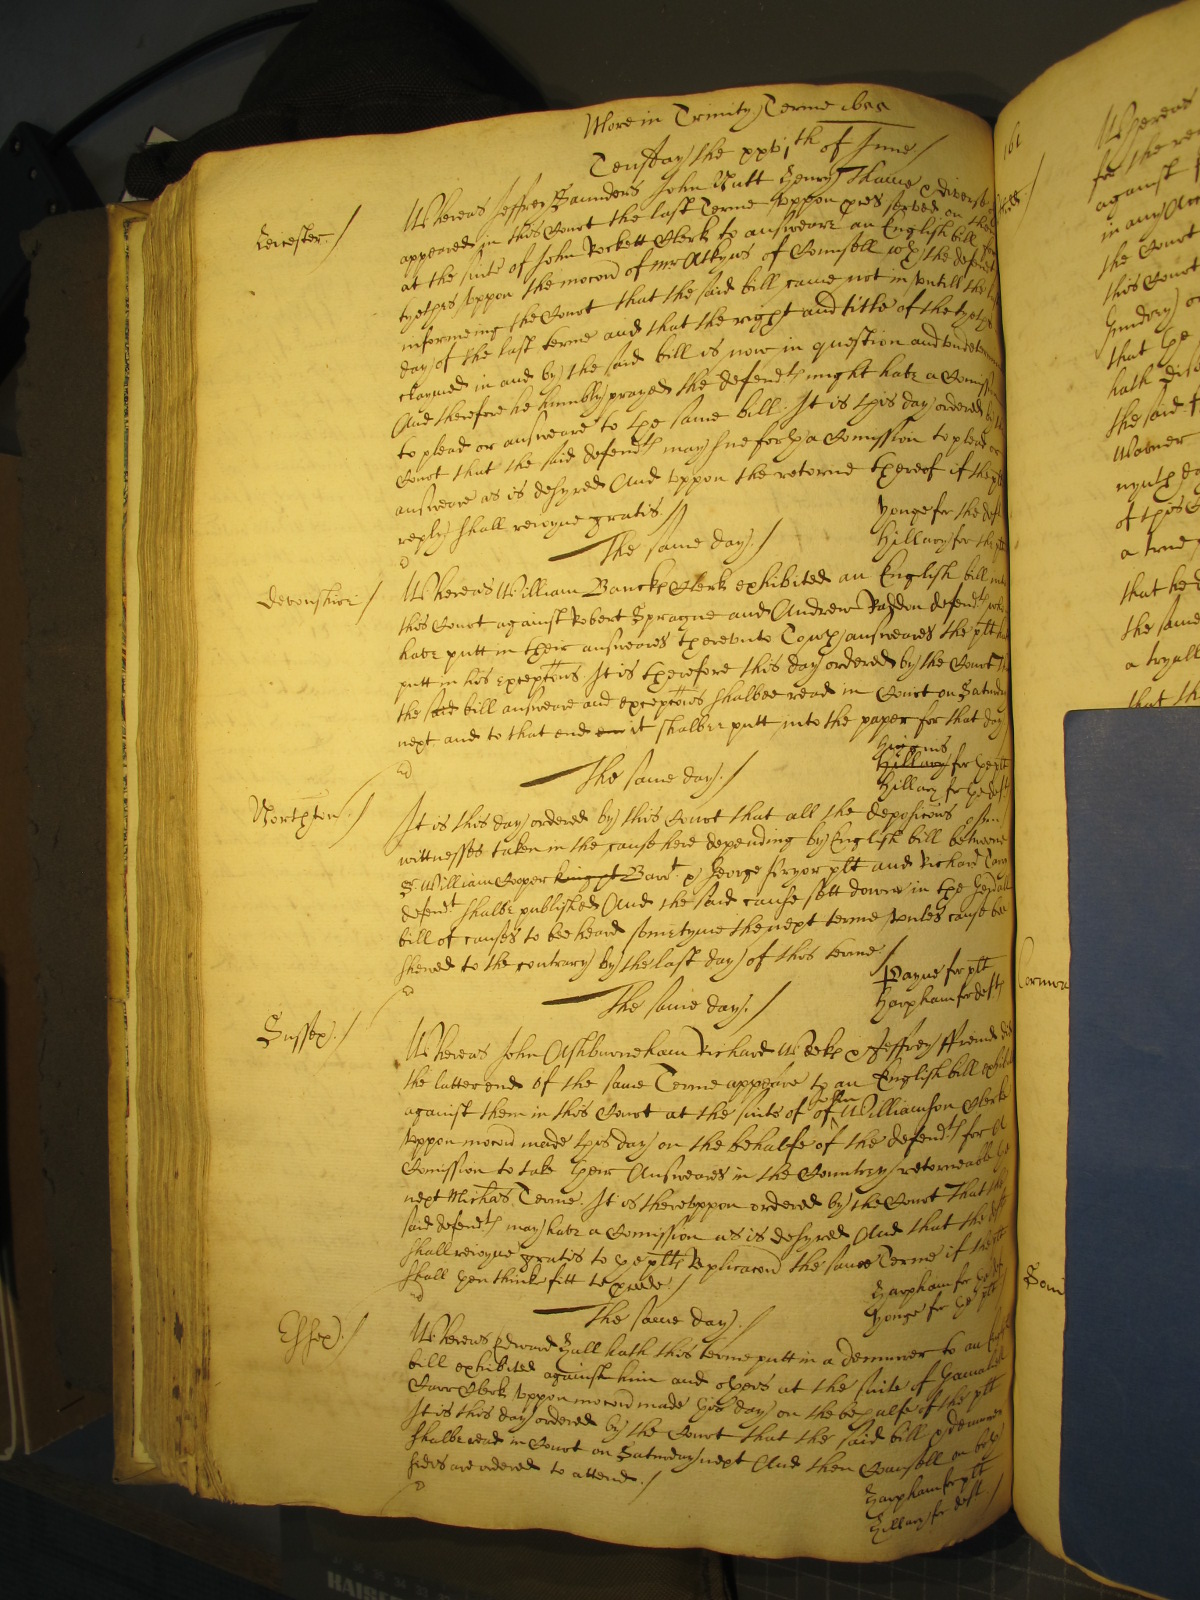 More in Trinity Terme 1655
Tewsday the xxvjth of June /
Leicester. /
Whereas Jeffrey Saunders John Nutt Henry Thawe & divers
appeared in this Court the last Terme uppon pces served on them
at the suite of John Rockett Clerk to answeare an English bill for
tythes uppon the mocon of Mr Atkyns of Counsell wth the defendts
informeing the Court that the said bill came not in untill the last
day of the last terme and that the right and title of the tythes
claymed in and by the said bill is now in question and undetermined
And therefore he humbly prayed the defendts might have a Comission
to plead or answeare to the same bill. It is this day ordered by the
Court that the said defendts may sue forth a Comission to plead or
answeare as is desyred And uppon the returne thereof if the plt
reply shall reioyne gratis. /
Yonge for the deft
Hillary for the plt
The same day. /
Devonshire /
Whereas William Banckes Clerk exhibited an English bill into
this Court against Robert Spragne and Andrew defendts who
have putt in their answeares thereunto To wch answeares the plt hath
putt in his exceptons It is therefore this day ordered by the Court That
the said bill answeare and exceptons shalbee read in Court on Saturday
next and to that end it shalbee putt into the paper for that day
Higgins
Hillary for the plt
Hillary for the deft
The same day. /
Northton. /
It is this day ordered by this Court that all the deposicons of
wittnesses taken in the cause here depending by English bill betweene
Sr William Cooper knight Barrt & George Pryor plt and Richard
defendt shalbe published And the said cause sett downe in the genall
bill of causes to bee heard sometyme the next terme unles cause bee
shewed to the contrary by the last day of this terme /
Payne for plt
Harpham for defts
The same day. /
Sussex. /
Whereas John Ashburneham Richard Weekes & Jeffrey ffriend did
the latter end of the same Terme appeare to an English bill exhibited
against them in this Court at the suite of of John Williamson Clerke
Uppon mocon made this day on the behalfe of the defendts for a
Comission to take their Answeares in the Countrey returneable the
next Michas Terme. It is thereuppon ordered by the Court That the
said defendts may have a Comission as is desyred And that the defts
shall reioyne gratis to the plts Replicacon the same Terme if the plt
shall then think fitt to pcede. /
Harpham for the deft
Yonge for the plt
The same day. /
Essex. /
Whereas Edward Hall hath this terme putt in a demurrer to an English
bill exhibited against him and others at the suite of Gamaliel
Carr Clerk Uppon mocon made this day on the behalfe of the plt
It is this day ordered by the Court that the said bill & demurrer
shalbe read in Court on Saturday next And then Counsell on both
sides are ordered to attend. /
Harpham for plt
Hillary for deft /
161
Whereas
for the
against
in any
the Court
this Court
Sundry
that he
hath
the said
of this
a true
that he
the same
a tryall
that the